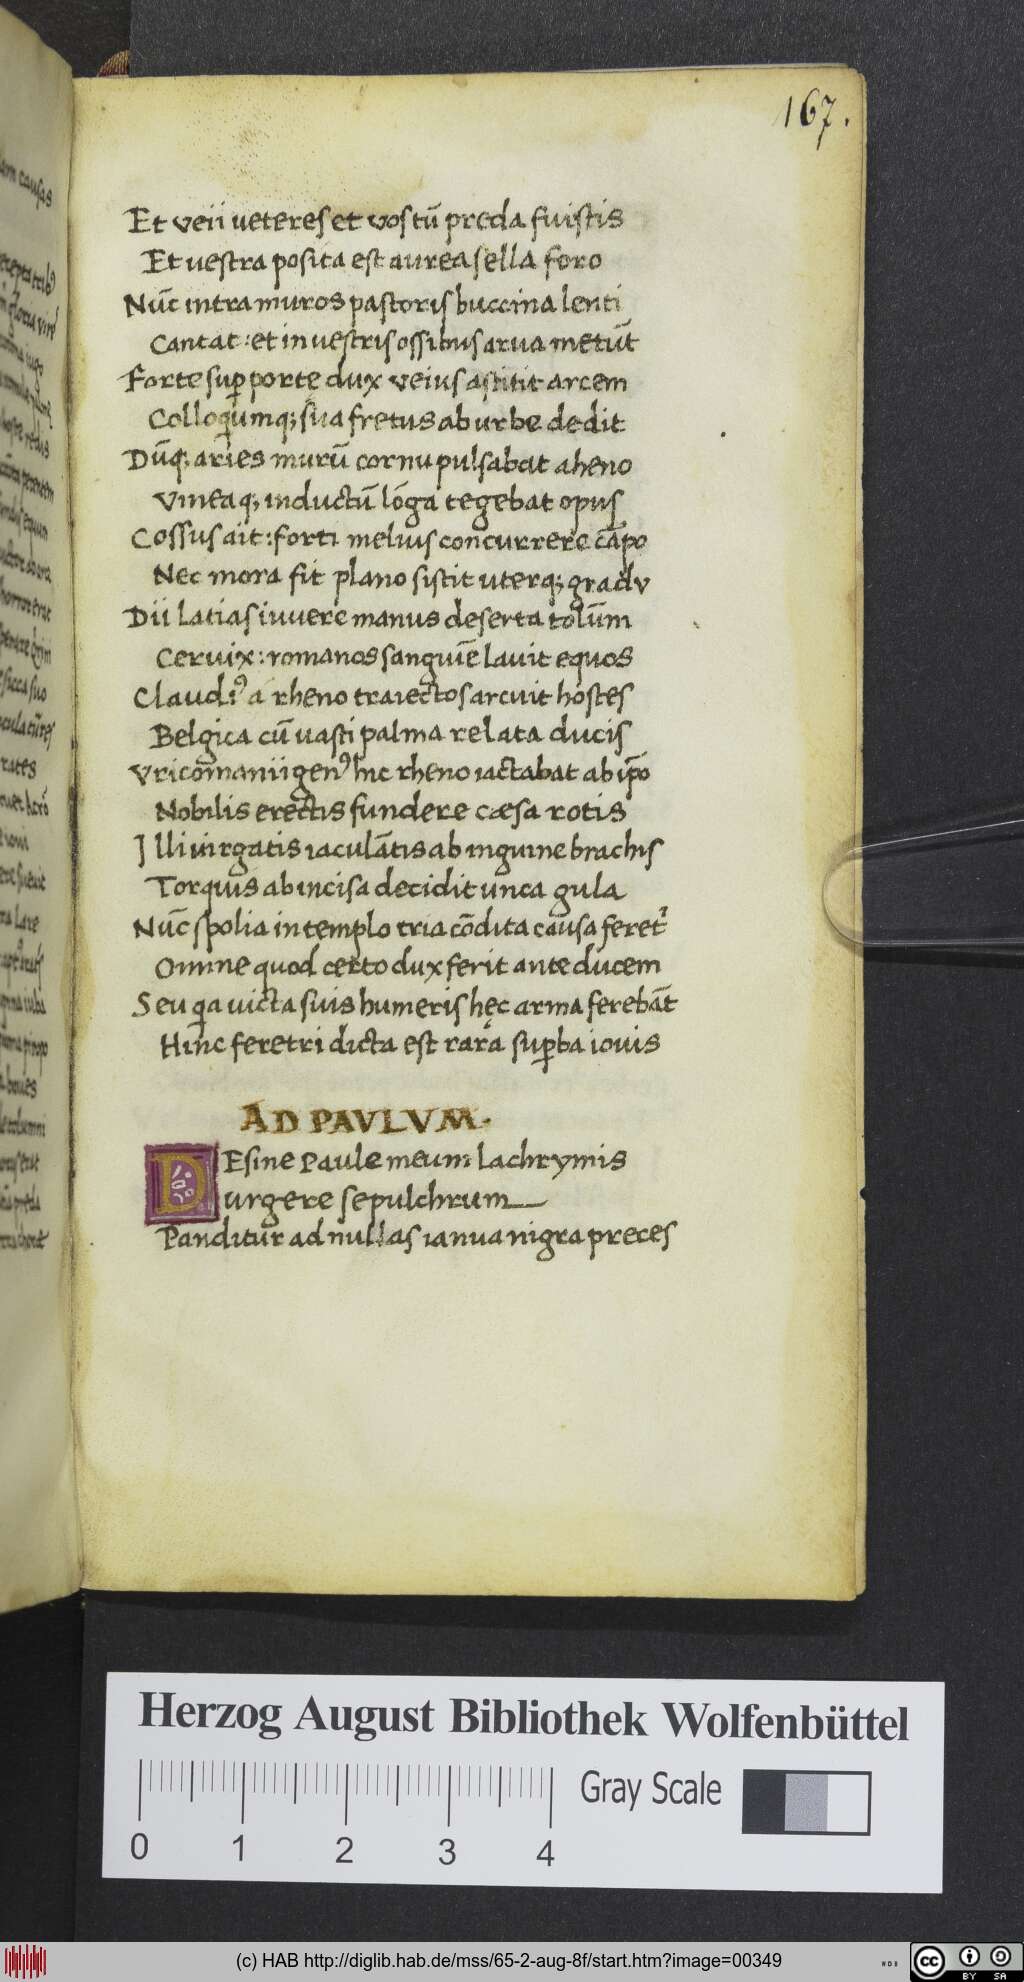 167.
Et veii ueteres et vos tū preda fuistis
Et uestra posita est aurea sella foro
Nūc intra muros pastoris buccina lenti
Cantat : et in uestris ossibus arua metūt
Forte sup porte dux veius astitit arcem
Colloqiumq; sua fretus ab urbe dedit
Dūq; aries murū cornu pulsabat aheno
Vineaq; inductū lōga tegebat opus
Cossus ait : forti melius concurrere cāpo
Nec mora fit plano sistit uterq; gradu
Dii latias iuuere manus deserta tolūm
Ceruix : romanos sanguīe lauit equos
Claudi⁹ a rheno traiectos arcuit hostes
Belgica cū uasti palma relata ducis
Vricomanii gen⁹ hic rheno iactabat ab ip̄o
Nobilis erectis fundere cæsa rotis
Illi uirgatis iaculātis ab inguine brachis
Torquis ab incisa decidit unca gula
Nūc spolia in templo tria cōdita causa feret
Omine quod certo dux ferit ante ducem
Seu qia uicta suis humeris hęc arma ferebāt
Hinc feretri dicta est rara supba iouis
AD PAVLVM.
DEsine Paule meum lachrymis
urgere sepulchrum
Panditur ad nullas ianua nigra preces
Herzog August Bibliothek Wolfenbüttel
Gray Scale
0 1 2 3 4
(c) HAB http://diglib.hab.de/mss/65-2-aug-8f/start.htm?image=00349
cc BY SA